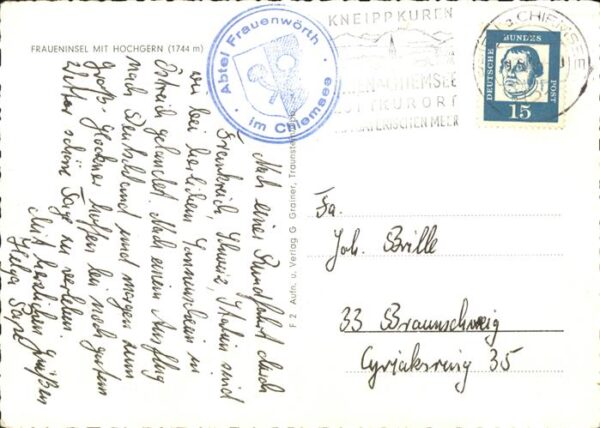 FRAUENINSEL MIT HOCHGERN (1744 m)
Abtei Frauenwörth
im Chiemsee
KNEIPPKUREN
CHIEMSEE
LUFTKURORT
BAYERISCHEN MEER
CHIEMSEE
DEUTSCHE BUNDESPOST
15
Nach einer Rundfahrt durch
Frankreich, Schweiz, Italien sind
wir bei herrlichem Sonnenschein in
Östreich gelandet. Nach einem Ausflug
nach Deutschland und morgen zum
Groß-Glockner hoffen bei noch gutem
Wetter schöne Tage zu verleben.
Mit herzlichen Grüßen
Helga
F 2 Aufn. u. Verlag G. Grainer, Traunstein
Fa.
Joh. Brille
33 Braunschweig
Cyriaksring 35